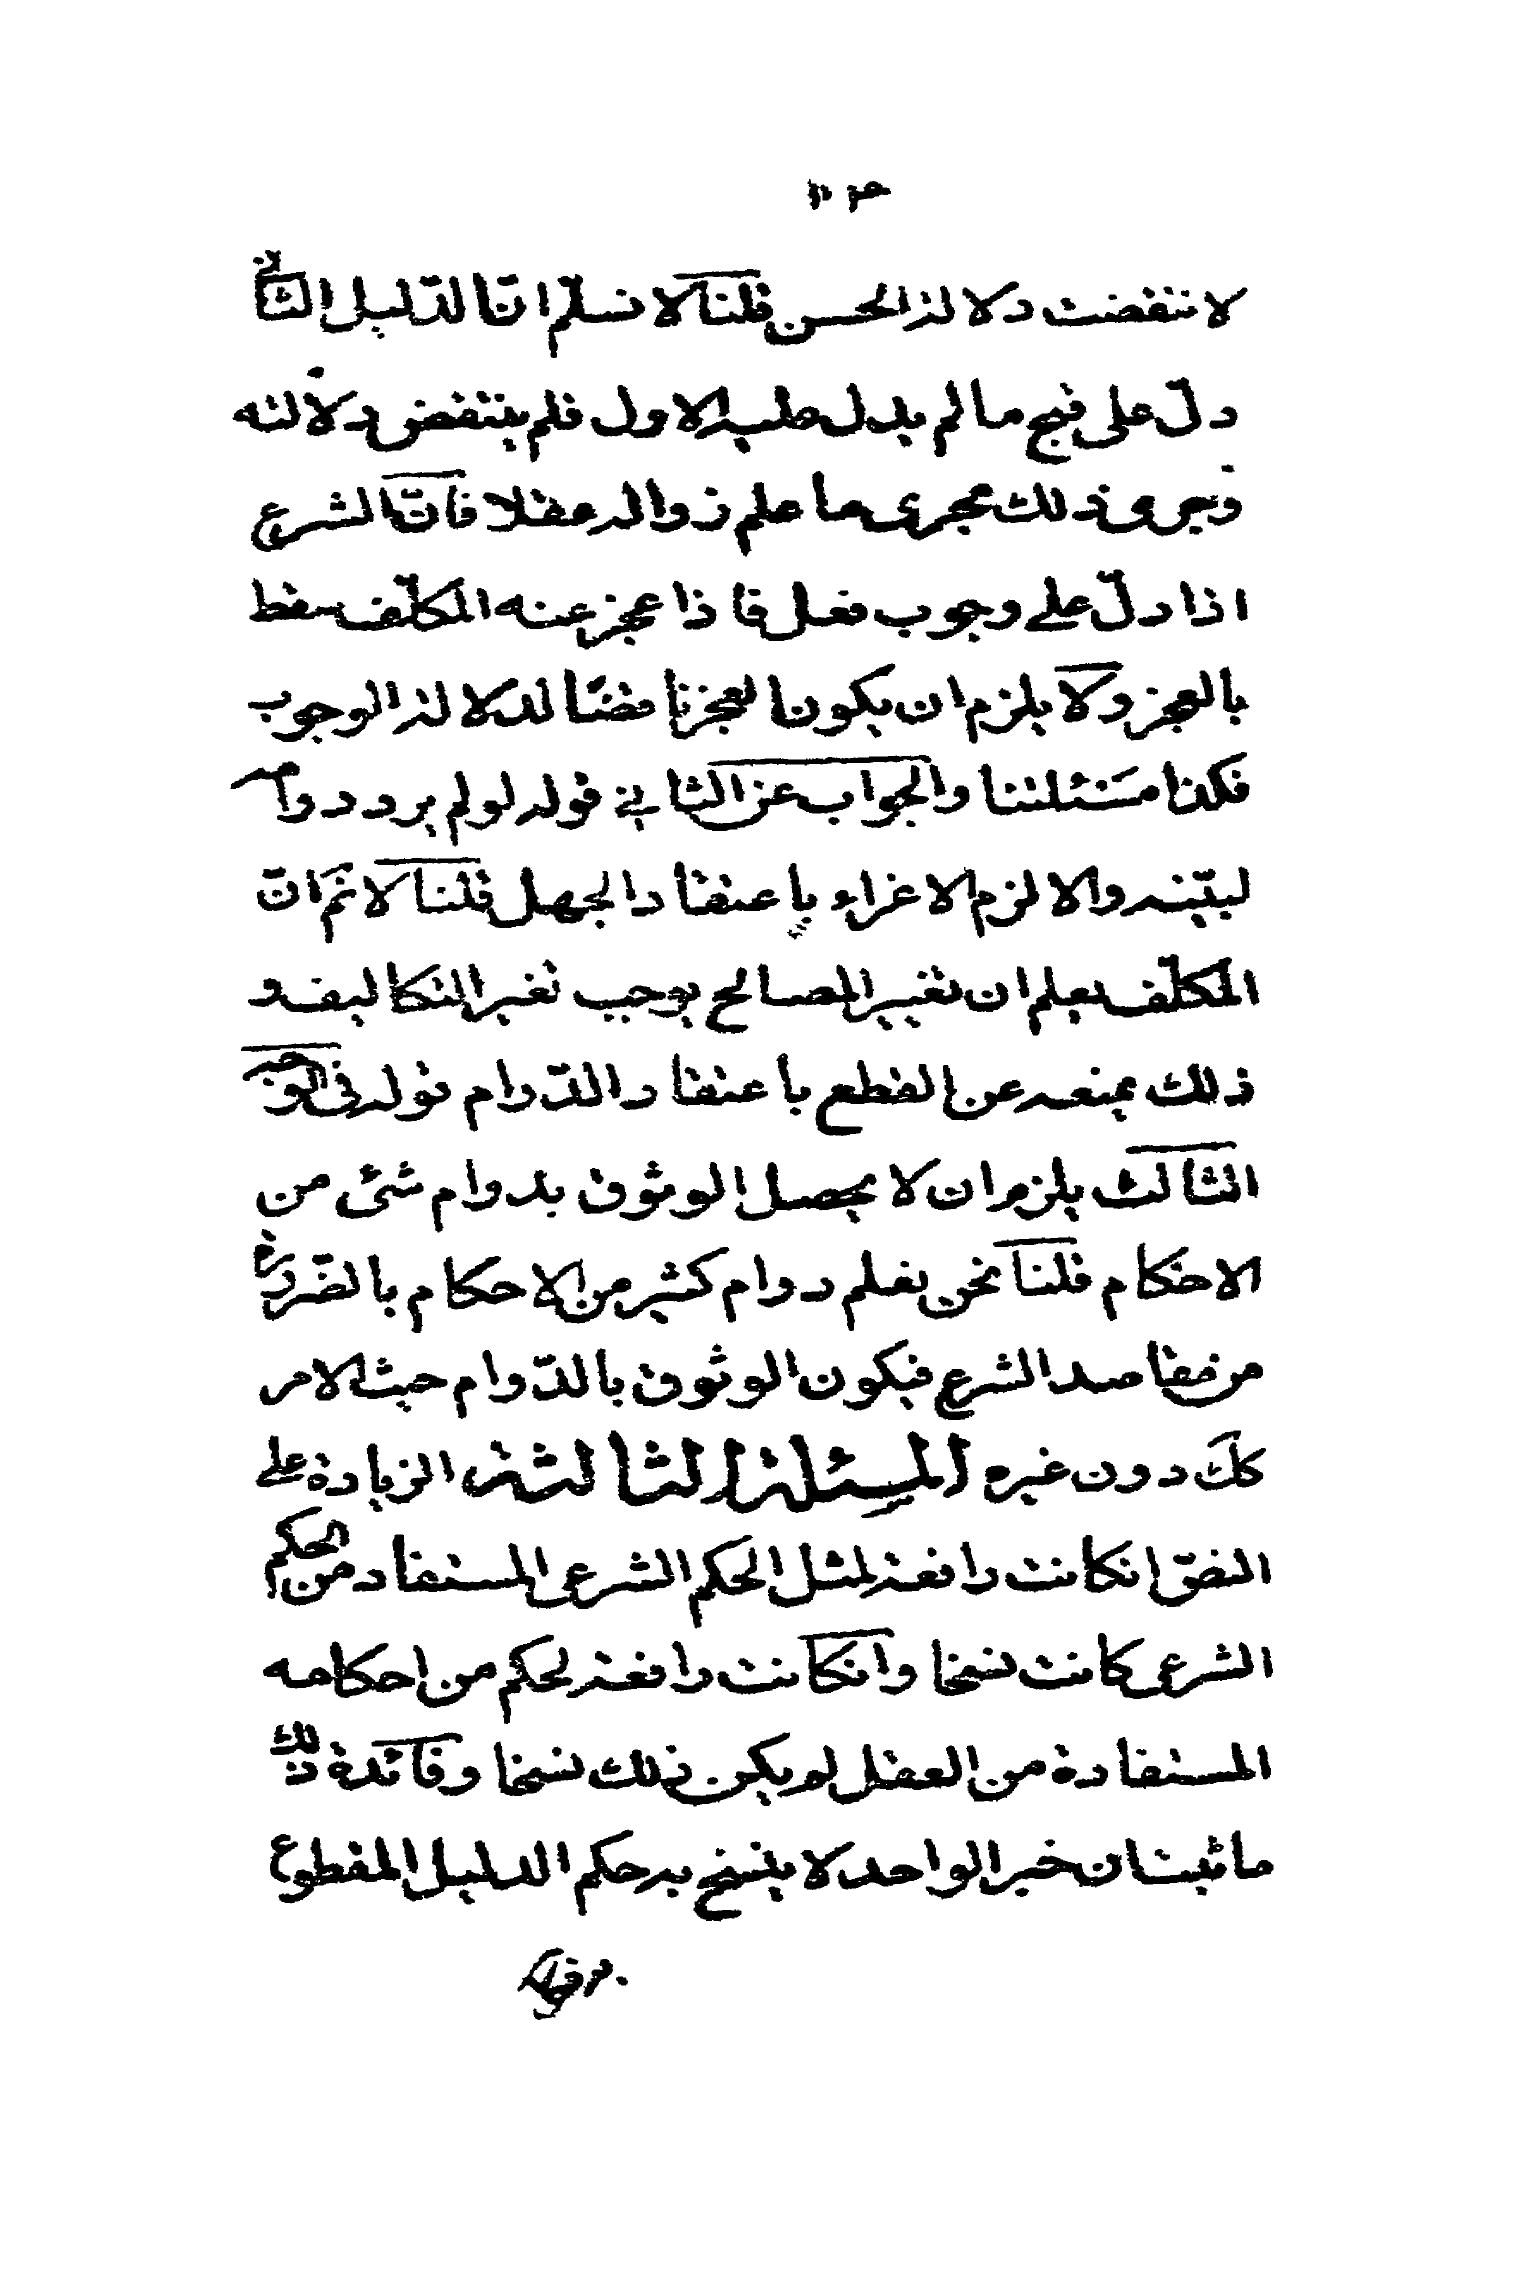 لانتقضت دلالة الحسن قلنا لا نسلّم انّ الدّليل الثانى
دلّ على قبح ما لم يدل عليه الاول فلم ينتقض دلالته
وجرى ذلك مجرى ما علم زواله عقلا فانّ الشرع
اذا دلّ على وجوب فعل فاذا عجز عنه المكلّف سقط
بالعجز ولا يلزم ان يكون العجز ناقضًا لدلالة الوجوب
فكذا مسئلتنا والجواب عن الثانى قوله لو لم يرد دوامه
لبيّنه والا لزم الاغراء باعتقاد الجهل قلنا لا ثم انّ
المكلّف يعلم ان تغيير المصالح يوجب تغير التكاليف و
ذلك يمنعه عن القطع باعتقاد الدّوام قوله فى الوجه
الثالث يلزم ان لا يحصل الوثوق بدوام شئ من
الاحكام قلنا نحن نعلم دوام كثير من الاحكام بالضّرورة
من مقاصد الشرع فيكون الوثوق بالدّوام حيث الامر
كك دون غيره المسئلة الثالثة الزيادة على
النصّ ان كانت رافعة لمثل الحكم الشرعى المستفاد من الحكم
الشرعى كانت نسخا وان كانت رافعة لحكم من احكامه
المستفادة من العقل لم يكن ذلك نسخا وفائدة ذلك
ما ثبت ان خبر الواحد لا ينسخ به حكم الدليل المقطوع